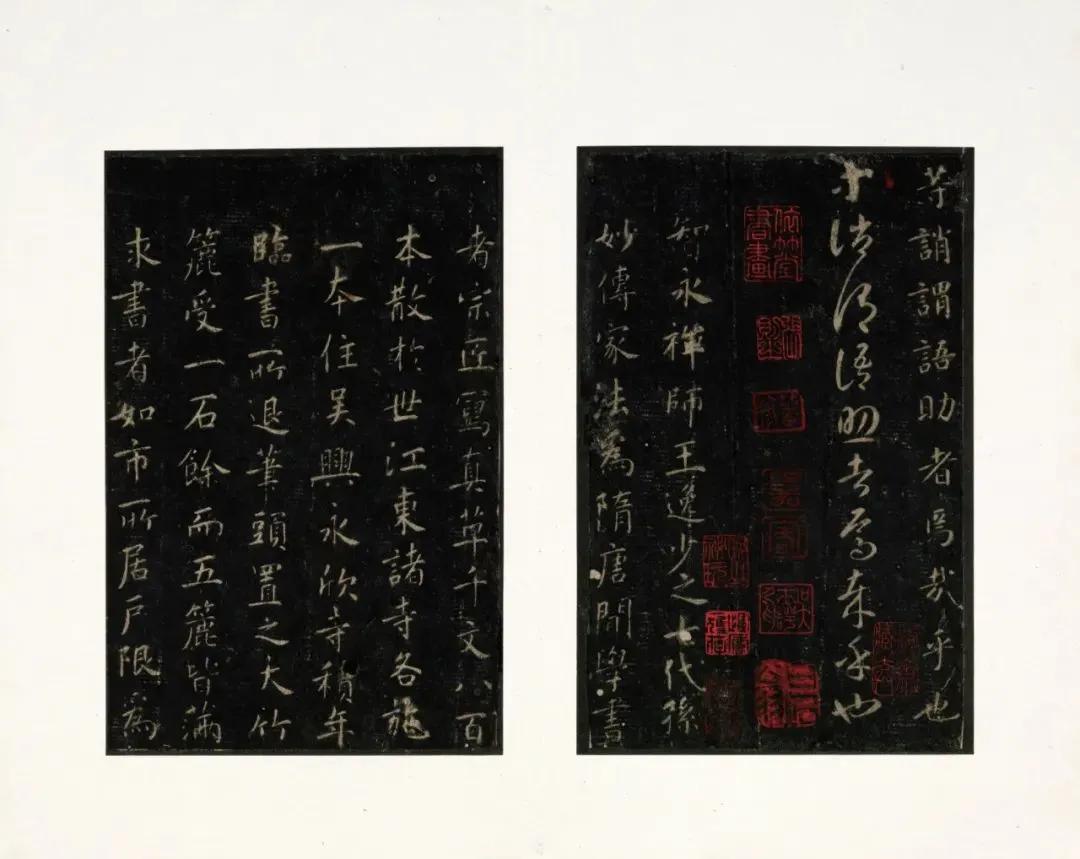 等誚謂語助者焉哉乎也
等誚謂語助者焉哉乎也
智永禪師王逸少之七代孫
妙傳家法為隋唐間學書
者宗匠寫真草千文八百
本散於世江東諸寺各施
一本住吳興永欣寺積年
臨書所退筆頭置之大竹
簏受一石餘而五簏皆滿
求書者如市所居戶限為